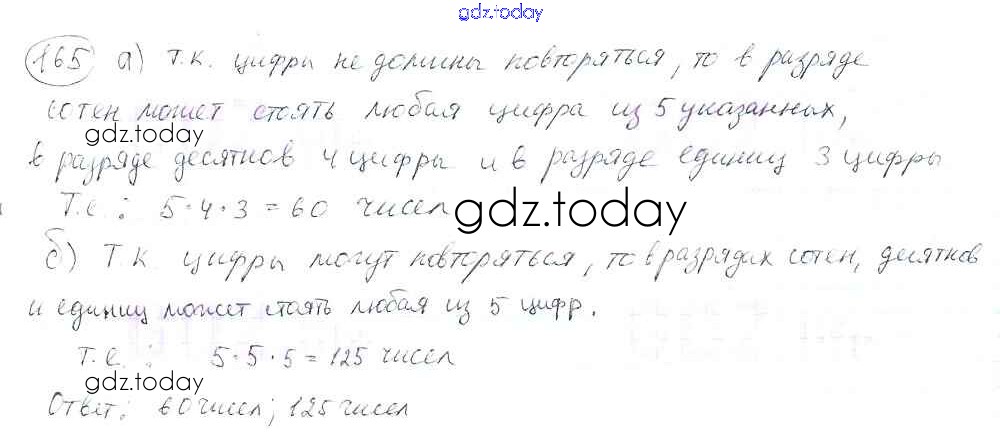 gdz.today
165 а) т.к. цифры не должны повторяться, то в разряде
сотен может стоять любая цифра из 5 указанных,
gdz.today
в разряде десятков 4 цифры и в разряде единиц 3 цифры
Т.е.: 5·4·3=60 чисел
gdz.today
б) Т.к. цифры могут повторяться, то в разрядах сотен, десятков
и единиц может стоять любая из 5 цифр.
Т.е.: 5·5·5=125 чисел
gdz.today
Ответ: 60 чисел; 125 чисел